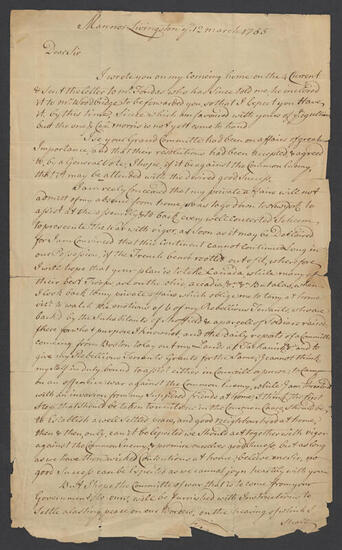 Mannor Livingston ye 12 march 1755
Dear Sir
I wrote you on my comeing home on the 4 Current
& sent the letter to mr. who has since told me he inclosed
it to mr. Woodbridge to be forwarded you, so that I expect you Have
it, by this time; Since which am favoured with yours of
but the one & Coll. morris is not yett come to hand
I see your Grand Committee had been on affairs of great
Importance, and that their resolutions had been accepted & agreed
to, by a General Vote, I hope, if it be against the Common Enemy,
that it may be attended with the desired good Success.
I am realy Concerned that my private affairs will not
admit of my absence from home, so as to go down to New york to
assist at the assembly & to back every well concerted scheme
to prosecute the war with vigor, as soon as it may be Declared
for I am Convinced that this Continent cannot Continue Long in
our Possession, if the French be not rooted out of it, therefore
I with hope that your plan is to take Canada while many of
their best Troops are on the ohio, accadia &c &c But alas, when
I look back into my private affairs which oblige me to tarry at home
is to watch the motions of of my Rebellious Tenants, who are
back'd by the Inhabitants of Sheffield & a parcell of Indians raised
there for that purpose I know not, and the daily reports of a Committee
comeing from Boston to lay out my Lands at Tachkanick and to
give my Rebellious Tenants Grants for the Same, I cannot think
my self in duty bound to assist either in Council or purse to carry
on an offencive war against the Common Enemy, while I am threatned
with an invasion from my supposed friends at home, I think the first
Step that should be taken to unite us in the Common Cause, should be,
to Establish a well settled peace, and good Neighbourhood at home,
then & then only, can it be expected we should act together with vigor
against the Common Enemy & promise ourselves good Success, But as long
as we have them wicked Contentions at home; believe me Sir, no
good Success can be Expected as we cannot joyn hearty with you
But I hope the Committe of war that is to come from your
Government to ours, will be furnished with Instructions to
settle a lasting peace on our Borders, on the hearing of which I